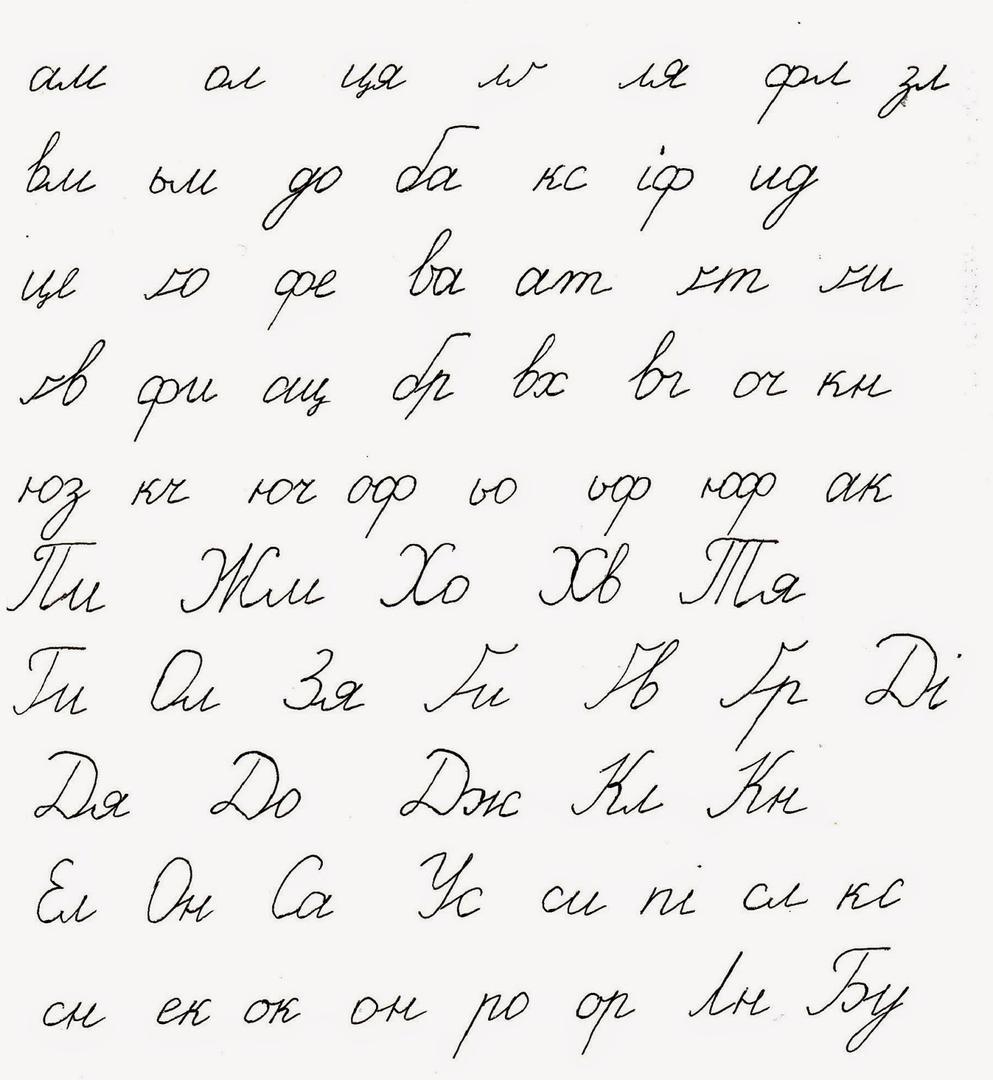 ам ол ця ля фл зл
вм ьм до ба кс іф ид
це ґо фе ва ат ґт ґи
ґв фи ащ бр вх вг оч кн
юз кч юч оф ьо ьф юф ак
Пи Жм Хо Хв Тя
Ги Ол Зя Ґи Ґв Ґр Ді
Дя До Дж Кл Кн
Ел Он Са Ус си пі сл кс
сн ек ок он ро ор Лн Бу